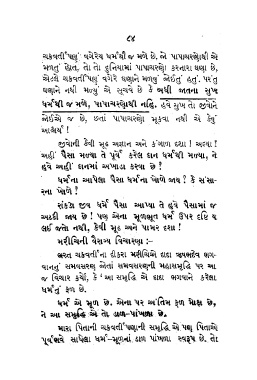 ૮૪
ચક્રવર્તીપણું વગેરેય ધર્મથી જ મળે છે. જો પાપાચરણોથી એ
મળતું હોત, તો તો દુનિયામાં પાપાચરણો કરનારા ઘણા છે,
એટલે ચક્રવર્તીપણું વગેરે ઘણાને મળવું જોઈતું હતું. પરંતુ
ઘણાને નથી મળ્યું એ સૂચવે છે કે બધી જાતના સુખ
ધર્મથી જ મળે, પાપાચરણોથી નહિ. હવે સુખ તો જીવોને
જોઈએ જ છે, છતાં પાપાચરણો મૂકવા નથી એ કેવું
આશ્ચર્ય !
જીવોની કેવી મૂઢ અજ્ઞાન અને કંગાળ દશા ! અહા !
અહીં પૈસા મળ્યા તે પૂર્વે કરેલ દાન ધર્મથી મળ્યા, ને
હવે અહીં દાનમાં અખાડા કરવા છે ?
ધર્મના આપેલા પૈસા ધર્મના ખોળે જાય ? કે સંસા-
રના ખોળે ?
સંકડો જીવ ધર્મે પૈસા આપ્યા તે હવે પૈસામાં જ
અટકી જાય છે ! પણ એના મૂળભૂત ધર્મ ઉપર દૃષ્ટિ ય
લઈ જતો નથી, કેવી મૂઢ અને પામર દશા !
મરીચિની વૈરાગ્ય વિચારણા :–
ભરત ચક્રવર્તીના દીકરા મરીચિએ દાદા ઋષભદેવ ભગ-
વાનનું સમવસરણ જોતાં સમવસરણની મહાસમૃદ્ધિ પર આ
જ વિચાર કર્યો, કે ‘આ સમૃદ્ધિ એ દાદા ભગવાને કરેલા
ધર્મનું ફળ છે.
ધર્મ એ મૂળ છે. એના પર અંતિમ ફળ મોક્ષ છે,
ને આ સમૃદ્ધિ એ તો ડાળ-પાંખળા છે.
મારા પિતાની ચક્રવર્તીપણાની સમૃદ્ધિ એ પણ પિતાએ
પૂર્વભવે સાધેલા ધર્મ-મૂળમાં ડાળ પાંખળા સ્વરૂપ છે. તો